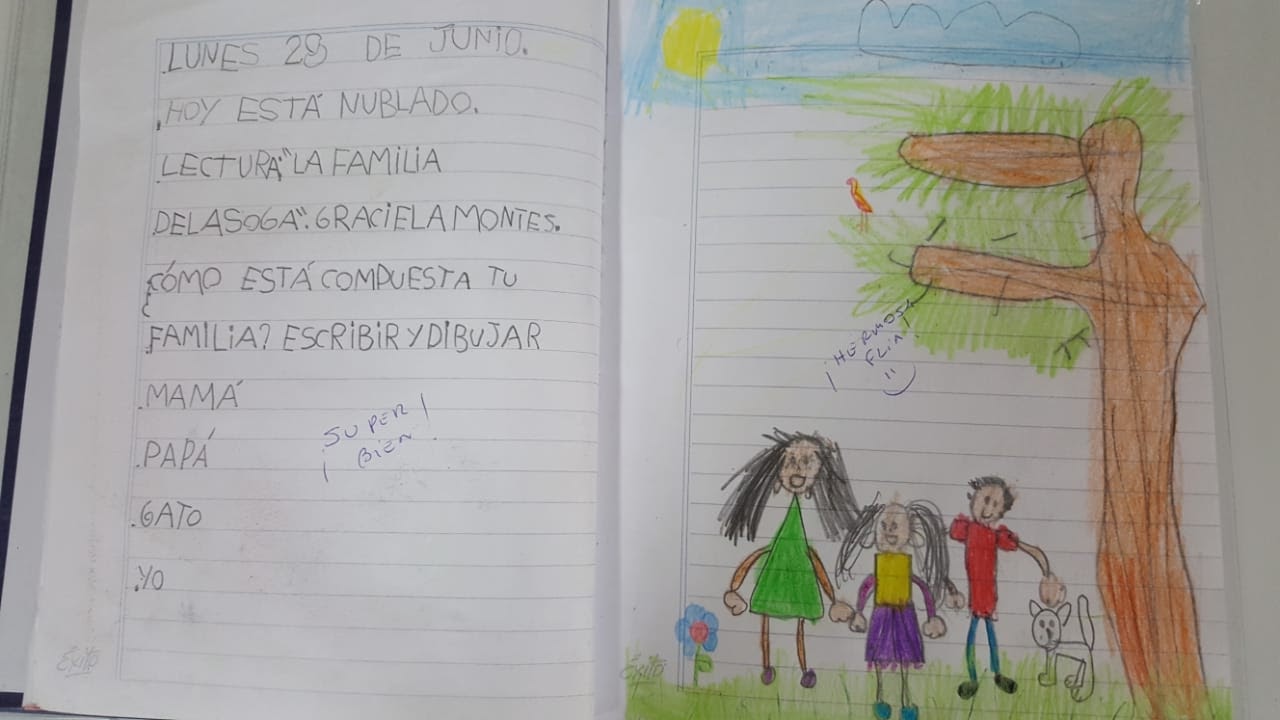 LUNES 28 DE JUNIO.
HOY ESTÁ NUBLADO.
LECTURA: "LA FAMILIA
DELASOGA". GRACIELA MONTES.
¿CÓMO ESTÁ COMPUESTA TU
FAMILIA? ESCRIBIR Y DIBUJAR
.MAMÁ
.PAPÁ
.GATO
.YO
¡SUPER
BIEN!
Éxito
¡HERMOSA
FLIA!
Éxito